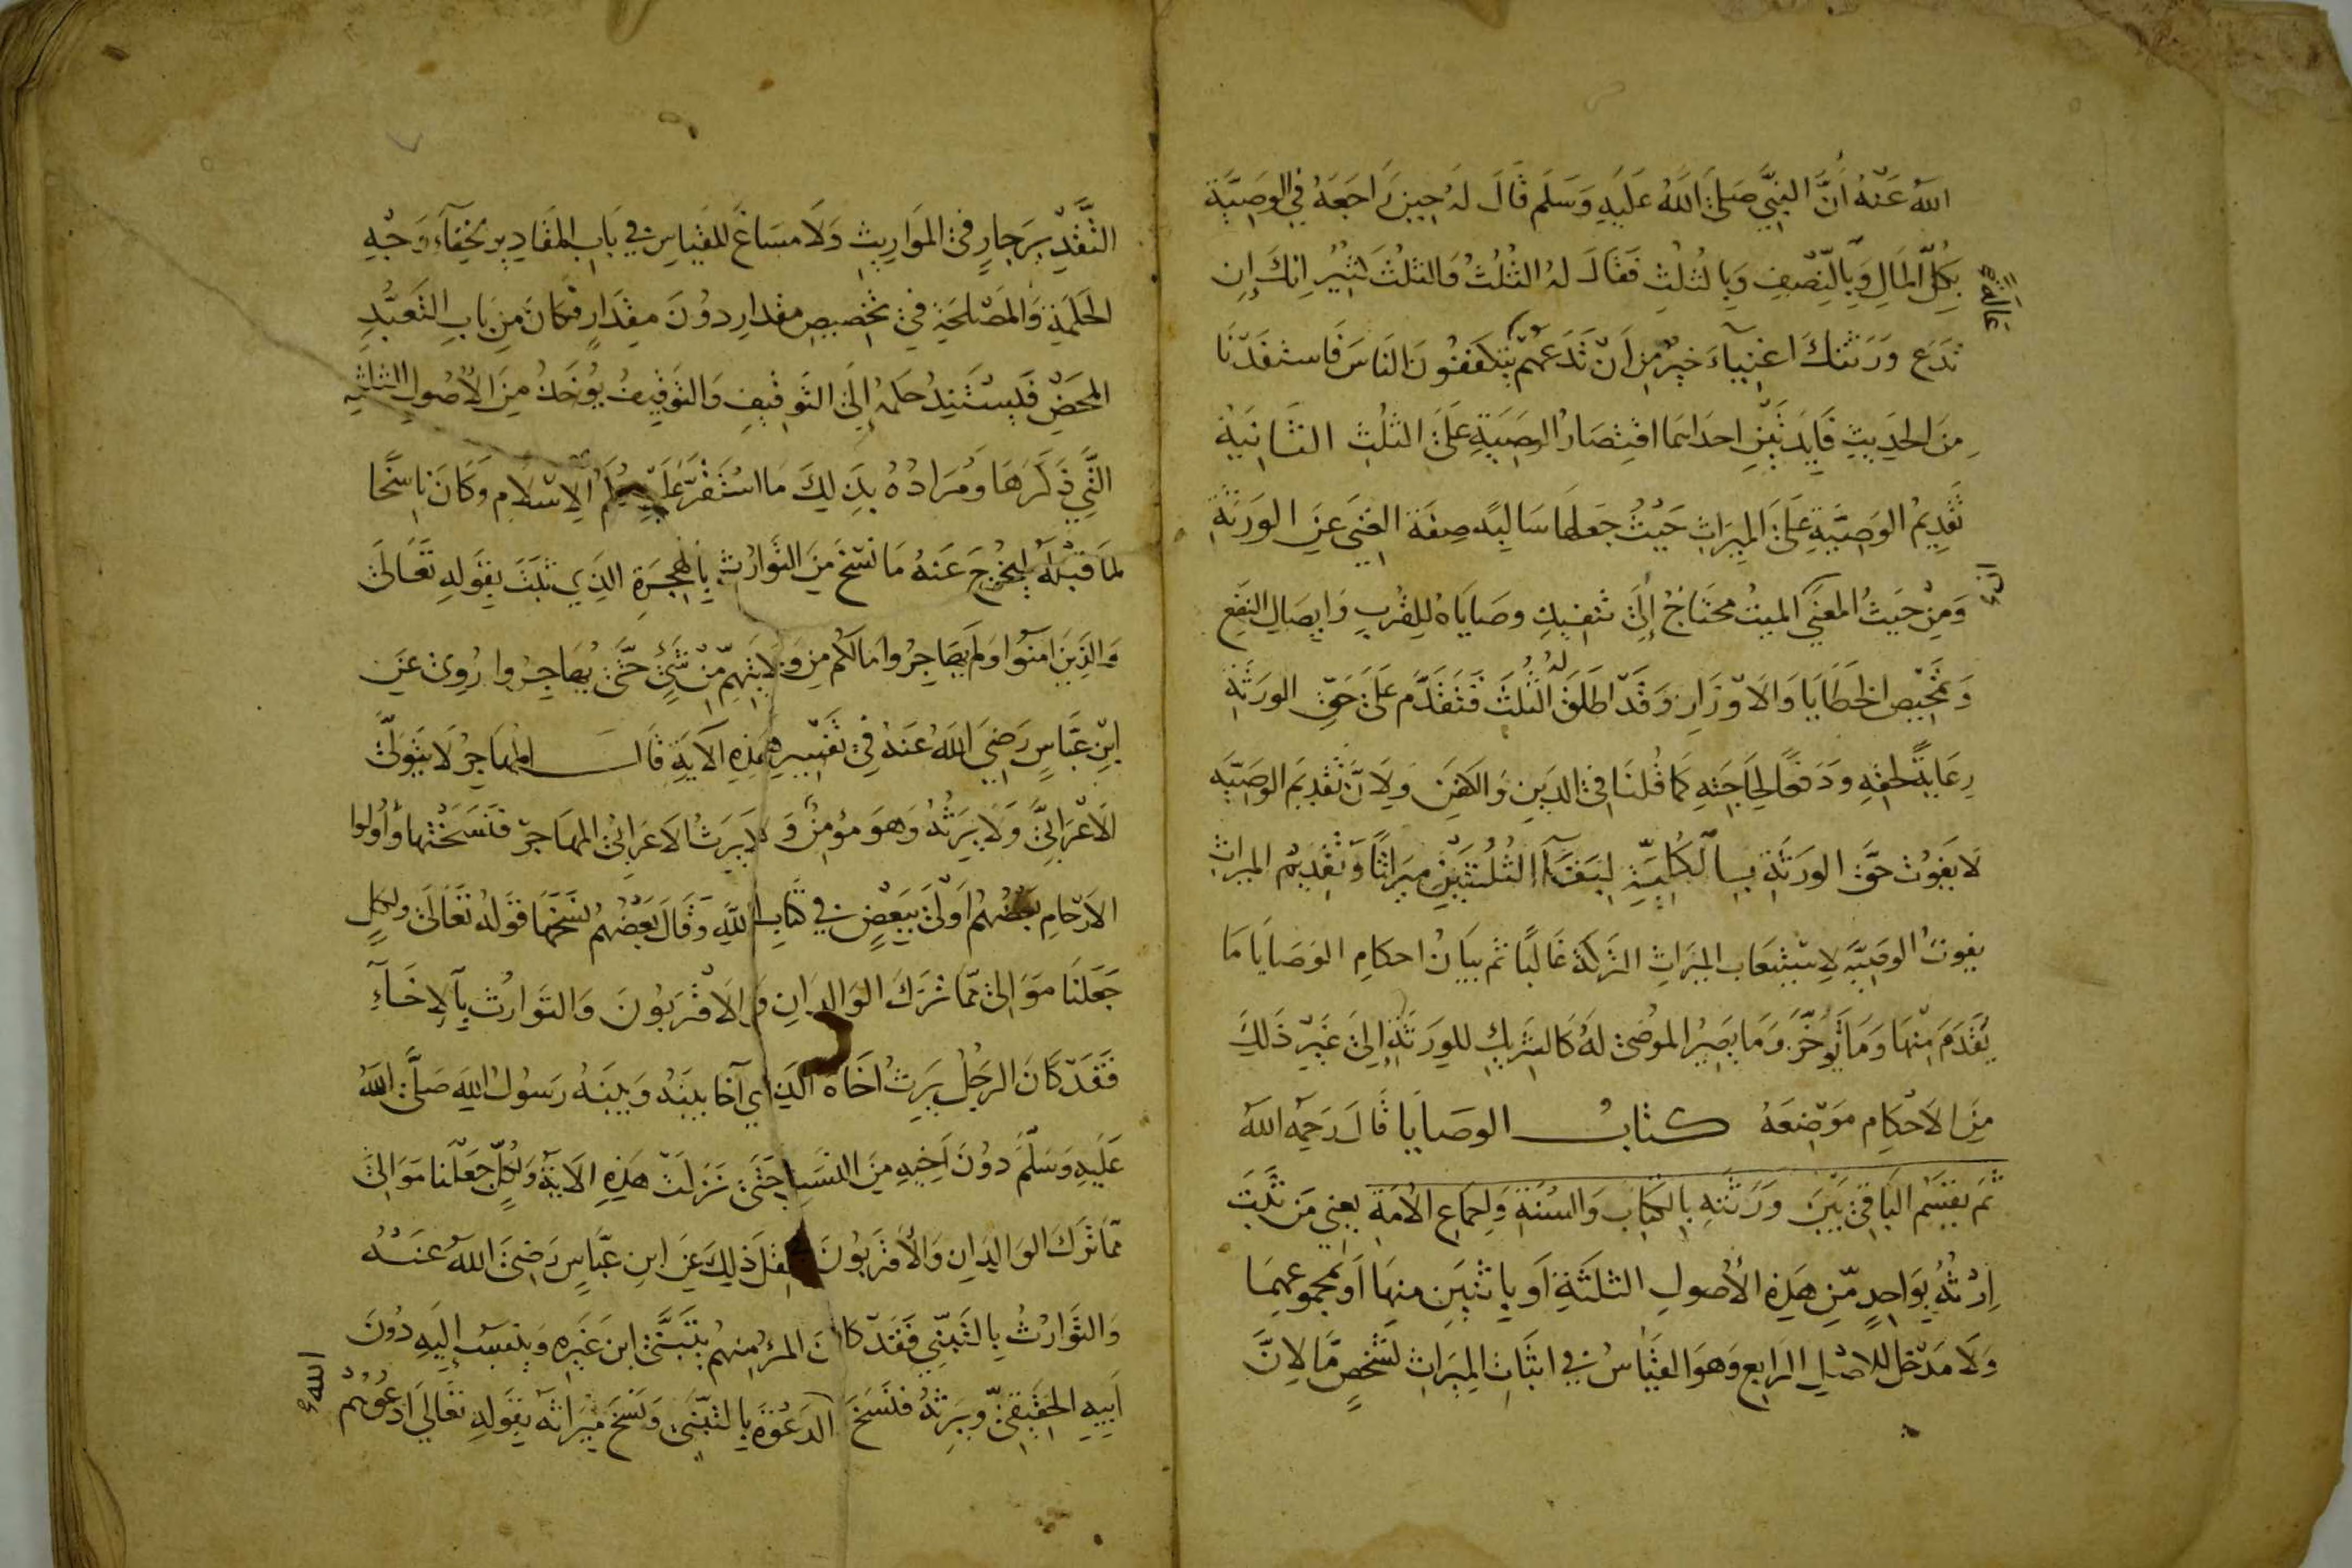 الله عنه أن النبي صلى الله عليه وسلم قال له حين راجعه في الوصية
بكل المال وبالنصف وبالثلث فقال له الثلث والثلث كثير انك إن
عالة
تدع ورثتك اغنياء خير من أن تدعهم يتكففون الناس فاستفدنا
من الحديث فايدتين احداهما اقتصار الوصية على الثلث الثانية
تقديم الوصية على الميراث حيث جعلها سالبه صفة الغنى عن الورثة
ومن حيث المعنى الميت محتاج إلى تنفيذ وصاياه للقرب وايصال النفع
وتمحيص الخطايا والاوزار وقد اطلق له الثلث فتقدم على حق الورثة
رعاية لحقه ودفعا لحاجته كما قلنا في الدين والكفن ولان تقديم الوصيه
لا يفوت حق الورثة بالكلية لبقاء الثلثين ميراثا وتقديم الميراث
يفوت الوصيه لاستيعاب الميراث التركة غالبا ثم بيان احكام الوصايا ما
يقدم منها وما يؤخر وما يصير الموصى له كالشريك للورثة إلى غير ذلك
من الاحكام موضعه كتاب الوصايا قال رحمه الله
ثم يقسم الباقي بين ورثته بالكتاب والسنة واجماع الامة يعني من ثبت
إرثه بواحد من هذه الأصول الثلثة أو باثنين منها أو بمجموعهما
ولا مدخل للاصل الرابع وهو القياس في اثبات الميراث لشخص ما لان
التقدير جار في المواريث ولا مساغ للقياس في باب المقادير لخفاء وجه
الحكمة والمصلحة في تخصيص مقدار دون مقدار فكان من باب التعبد
المحض فيستند حكمه إلى التوقيف والتوقيف يؤخذ من الأصول الثلثه
التي ذكرها ومراده بذلك ما استقر عليه الاسلام وكان ناسخا
لما قبله ليخرج عنه ما نسخ من التوارث بالهجرة الذي ثبت بقوله تعالى
والذين امنوا ولم يهاجروا مالكم من ولايتهم من شئ حتى يهاجروا روى عن
ابن عباس رضي الله عنه في تفسير هذه الآية قال المهاجر لا يتولى
الأعرابي ولا يرثه وهو مؤمن ولا يرث الاعرابي المهاجر فنسختها وأولوا
الارحام بعضهم أولى ببعض في كتاب الله وقال بعضهم نسخها قوله تعالى ولكل
جعلنا موالي مما ترك الوالدان والاقربون والتوارث بالاخاء
فقد كان الرجل يرث اخاه الذي آخا بينه وبينه رسول الله صلى الله
عليه وسلم دون أخيه من النسب حتى نزلت هذه الاية ولكل جعلنا موالي
مما ترك الوالدان والأقربون نقل ذلك عن ابن عباس رضي الله عنه
والتوارث بالتبني فقد كان المرء منهم يتبنى ابن غيره وينتسب إليه دون
أبيه الحقيقي ويرثه فنسخ الدعوة بالتبني ونسخ ميراثه بقوله تعالى ادعوهم